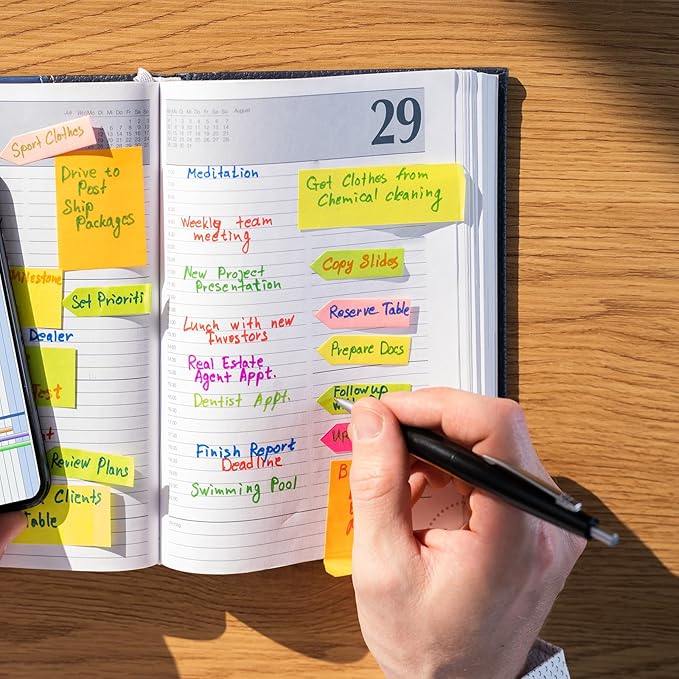 Sport Clothes
Drive to
Post
Ship
Packages
Milestone
Set Prioriti
Dealer
Test
Review Plans
Clients
Table
August
29
Meditation
Weekly team
meeting
New Project
Presentation
Lunch with new
Investors
Real Estate
Agent Appt.
Dentist Appt.
Finish Report
Deadline
Swimming Pool
Get Clothes from
Chemical cleaning
Copy Slides
Reserve Table
Prepare Docs
Follow up